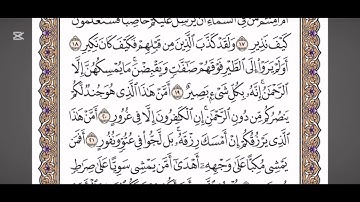 أَم أَمِنتُم مَّن فِي ٱلسَّمَآءِ أَن يُرۡسِلَ عَلَيۡكُمۡ حَاصِبٗاۖ فَسَتَعۡلَمُونَ
كَيۡفَ نَذِيرِ ١٧ وَلَقَدۡ كَذَّبَ ٱلَّذِينَ مِن قَبۡلِهِمۡ فَكَيۡفَ كَانَ نَكِيرِ ١٨
أَوَلَمۡ يَرَوۡاْ إِلَى ٱلطَّيۡرِ فَوۡقَهُمۡ صَٰٓفَّٰتٖ وَيَقۡبِضۡنَۚ مَا يُمۡسِكُهُنَّ إِلَّا
ٱلرَّحۡمَٰنُۚ إِنَّهُۥ بِكُلِّ شَيۡءِۭ بَصِيرٌ ١٩ أَمَّنۡ هَٰذَا ٱلَّذِي هُوَ جُندٞ لَّكُمۡ
يَنصُرُكُم مِّن دُونِ ٱلرَّحۡمَٰنِۚ إِنِ ٱلۡكَٰفِرُونَ إِلَّا فِي غُرُورٍ ٢٠ أَمَّنۡ هَٰذَا
ٱلَّذِي يَرۡزُقُكُمۡ إِنۡ أَمۡسَكَ رِزۡقَهُۥۚ بَل لَّجُّواْ فِي عُتُوّٖ وَنُفُورٍ ٢١ أَفَمَن
يَمۡشِي مُكِبًّا عَلَىٰ وَجۡهِهِۦٓ أَهۡدَىٰٓ أَمَّن يَمۡشِي سَوِيًّا عَلَىٰ صِرَٰطٖ